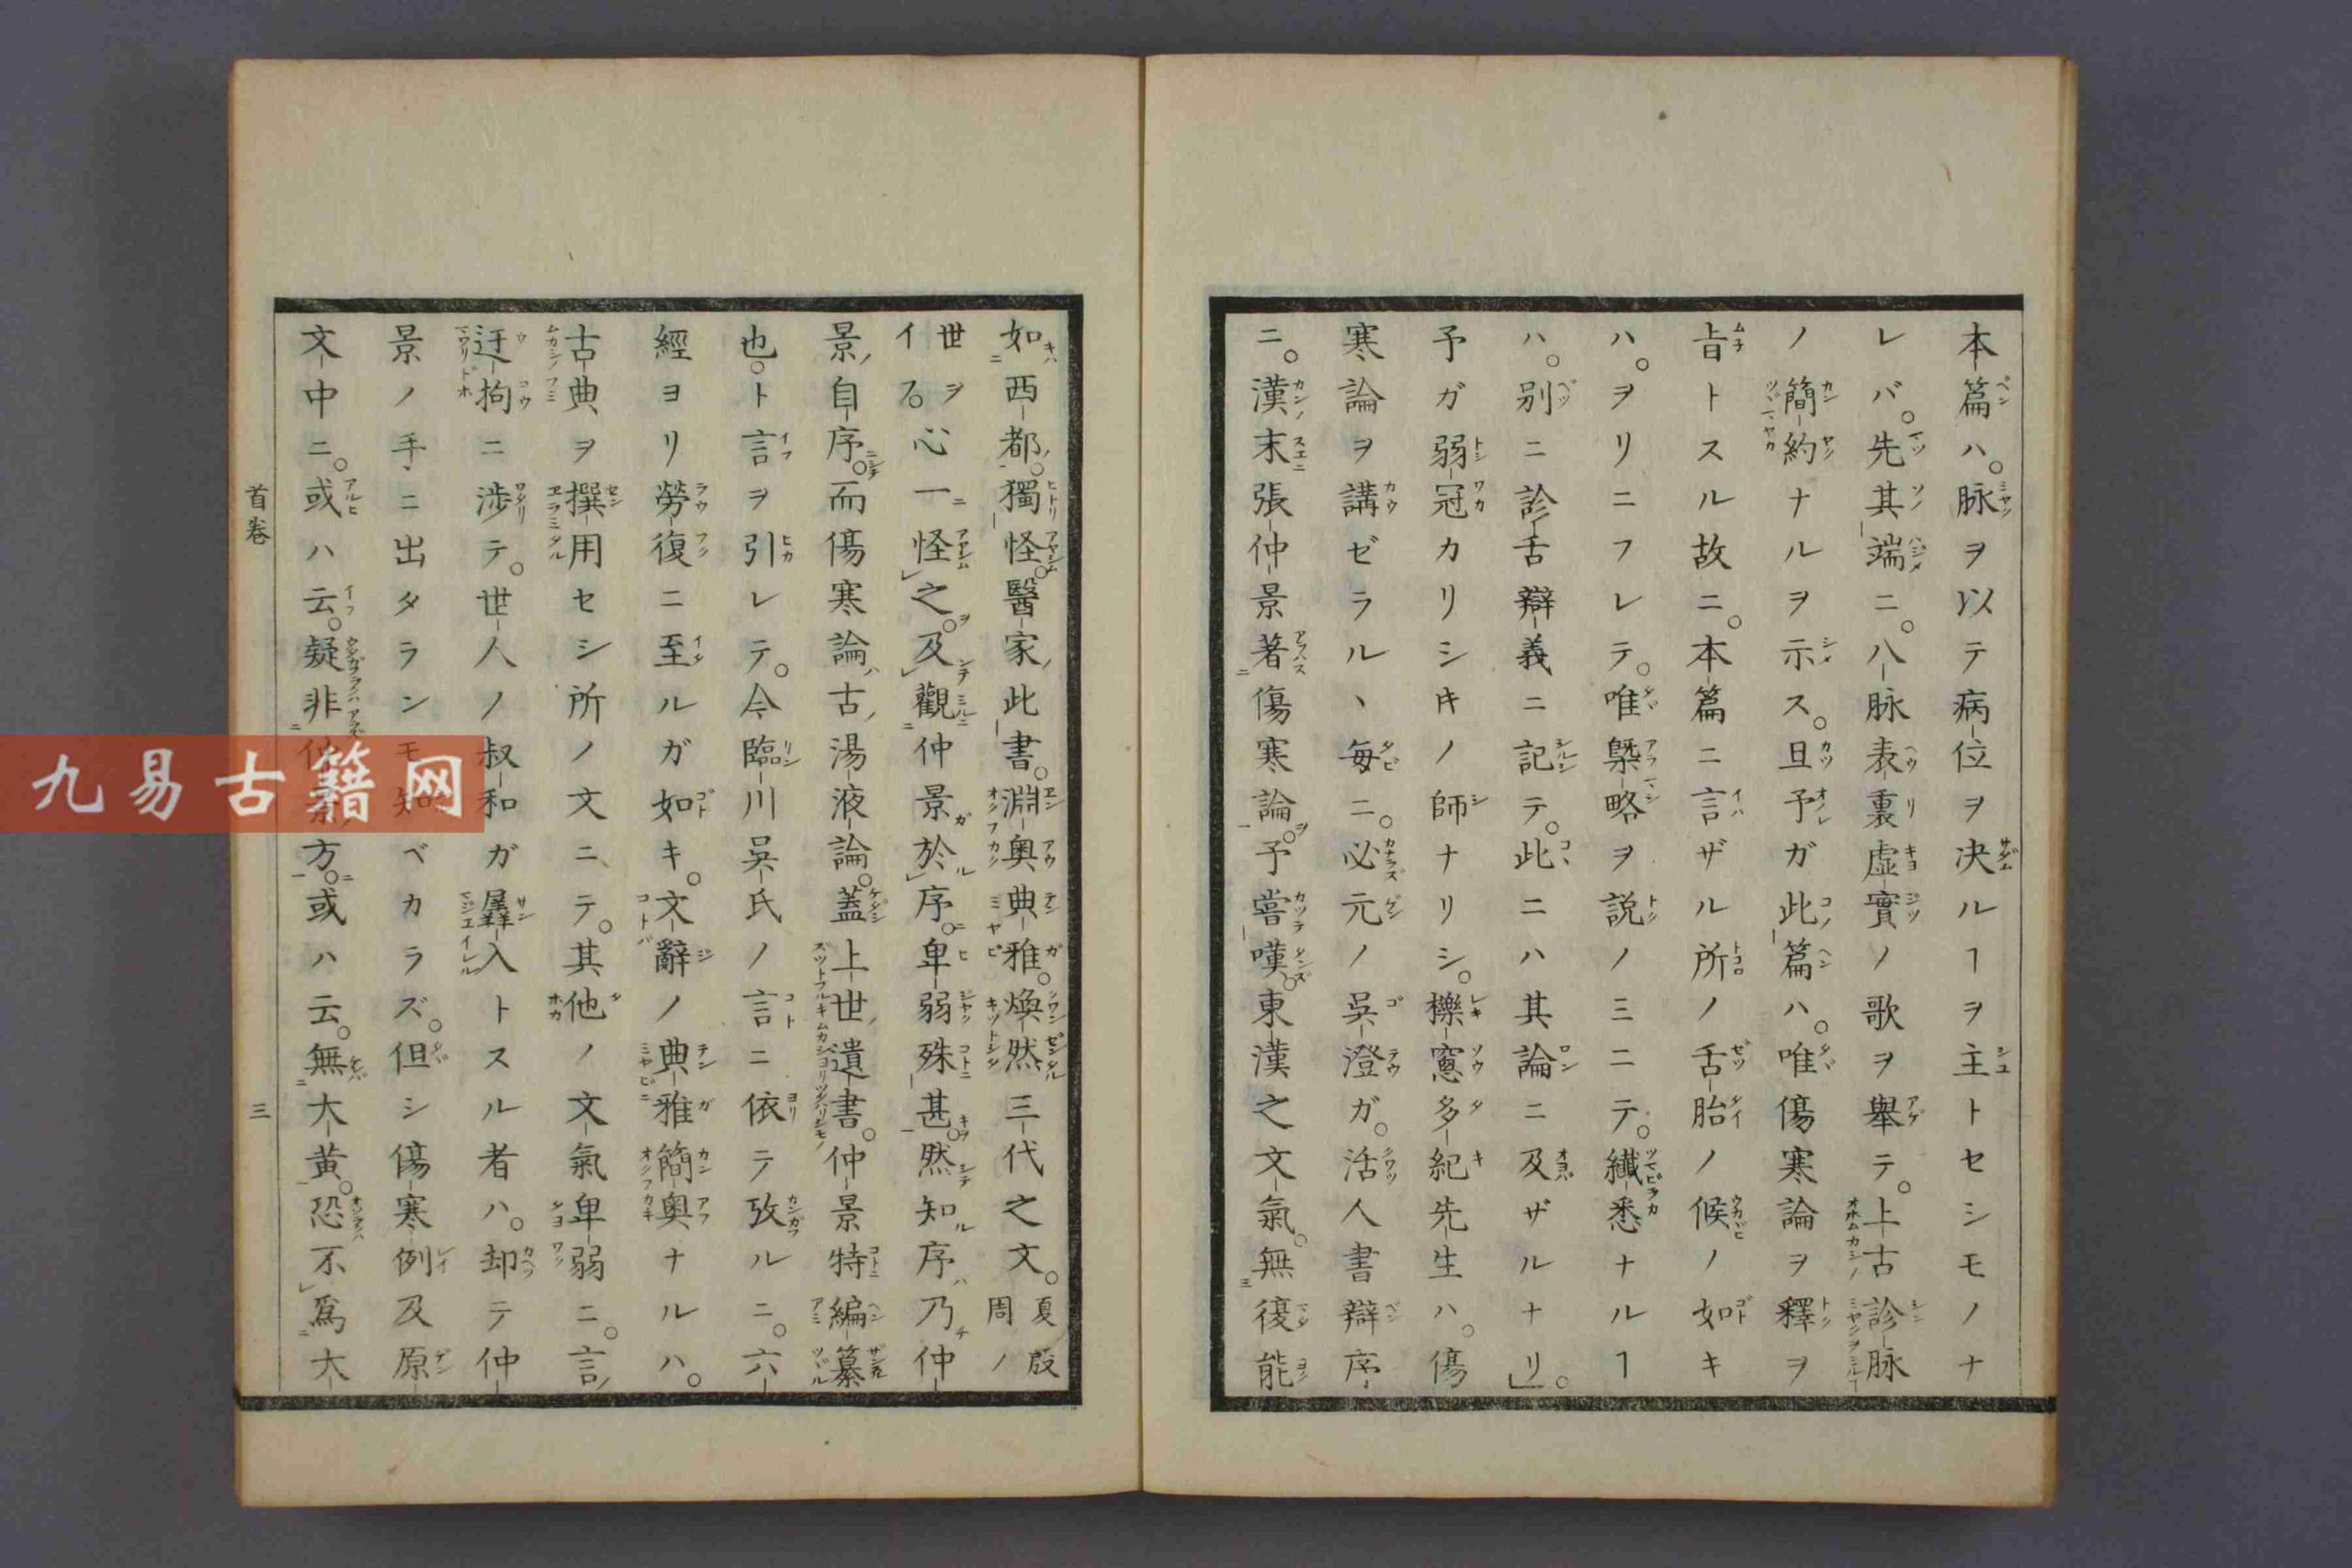 本篇ハ。脉ヲ以テ病位ヲ决ルヿヲ主トセシモノナ
レバ。先其端ニ。八脉表裏虚實ノ歌ヲ舉テ。上古診脉
ノ簡約ナルヲ示ス。且予ガ此篇ハ。唯傷寒論ヲ釋ヲ
旨トスル故ニ。本篇ニ言ザル所ノ舌胎ノ候ノ如キ
ハ。ヲリニフレテ。唯槩略ヲ説ノミニテ。纎悉ナルヿ
ハ。別ニ診舌辯義ニ記テ。此ニハ其論ニ及ザルナリ」。
予ガ弱冠カリシキノ師ナリシ。櫟窻多紀先生ハ。傷
寒論ヲ講ゼラルヽ毎ニ。必元ノ吳澄ガ。活人書辯序
ニ。漢末張仲景著傷寒論。予嘗嘆。東漢之文氣。無復能
如西都。獨怪。醫家此書。淵奥典雅。煥然三代之文。夏殷周ノ
世ヲイフ。心一怪之。及觀仲景於序。卑弱殊甚。然知序乃仲
景自序。而傷寒論古湯液論。蓋上世遺書。仲景特編纂
也。ト言ヲ引レテ。今臨川吳氏ノ言ニ依テ攷ルニ。六
經ヨリ勞復ニ至ルガ如キ。文辭ノ典雅簡奥ナルハ。
古典ヲ撰用セシ所ノ文ニテ。其他ノ文氣卑弱ニ。言
迂拘ニ涉テ。世人ノ叔和ガ羼入トスル者ハ。却テ仲
景ノ手ニ出タランモ知ベカラズ。但シ傷寒例及原
文中ニ。或ハ云。疑非方。或ハ云。無大黄。恐不爲大
首卷
三
九易古籍网